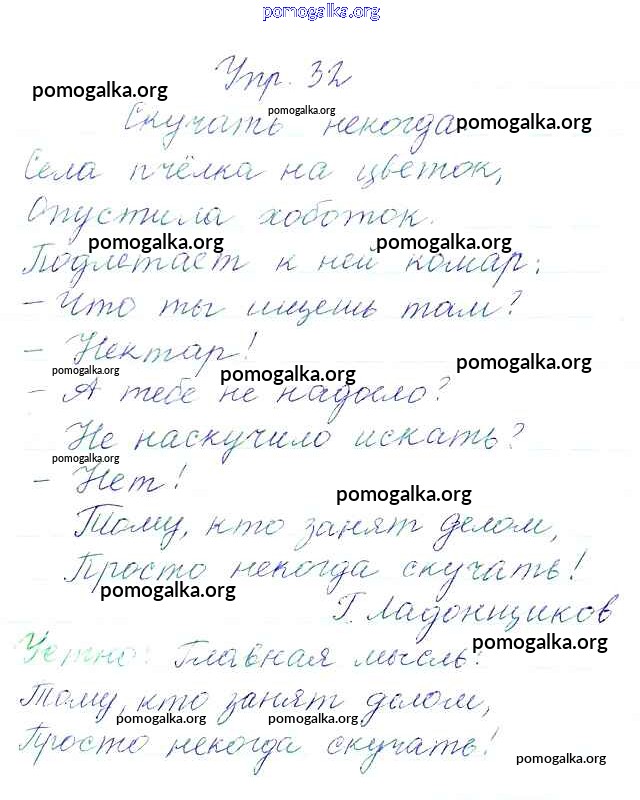 pomogalka.org
Упр. 32
pomogalka.org
pomogalka.org
Скучать некогда.
pomogalka.org
Села пчёлка на цветок,
Опустила хоботок.
pomogalka.org pomogalka.org
Подлетает к ней комар:
– Что ты ищешь там?
– Нектар!
pomogalka.org pomogalka.org pomogalka.org
– А тебе не надоело?
Не наскучило искать?
pomogalka.org
– Нет!
pomogalka.org
Тому, кто занят делом,
Просто некогда скучать!
pomogalka.org
Г. Ладонщиков
pomogalka.org
Устно: Главная мысль:
Тому, кто занят делом,
pomogalka.org pomogalka.org
Просто некогда скучать!
pomogalka.org